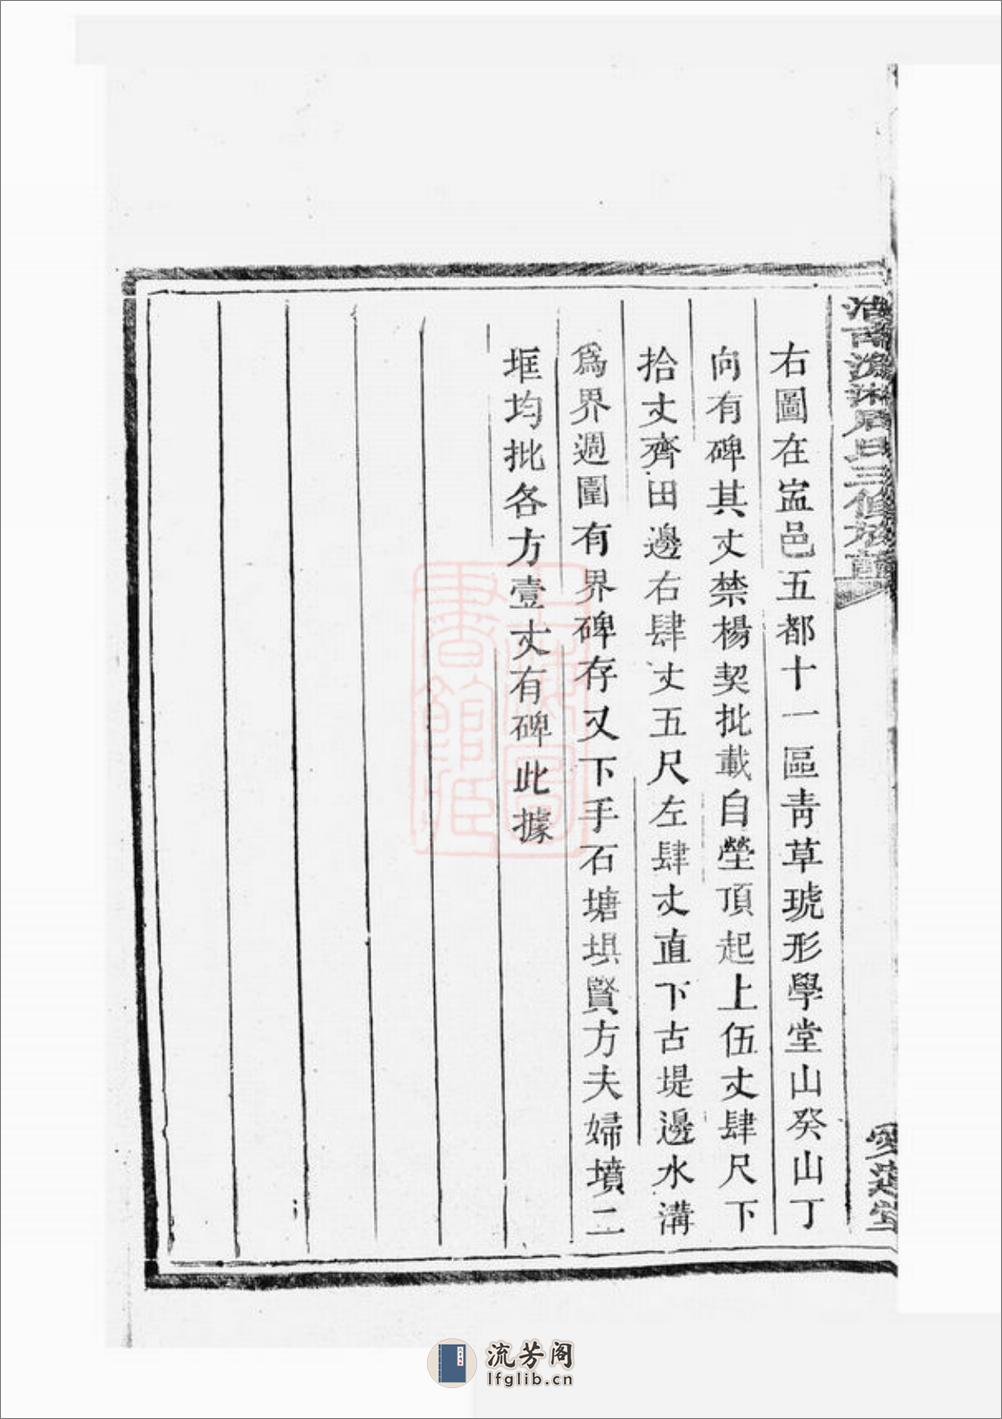 右圖在寍邑五都十一區青草琥形學堂山癸山丁
向有碑其丈禁楊契批載自塋頂起上伍丈肆尺下
拾丈齊田邊右肆丈五尺左肆丈直下古堤邊水溝
為界週圍有界碑存又下手石塘垻賢方夫婦墳二
堆均批各方壹丈有碑此據
氏三修族譜
愛蓮堂
上海圖書館藏
流芳阁
lfglib.cn